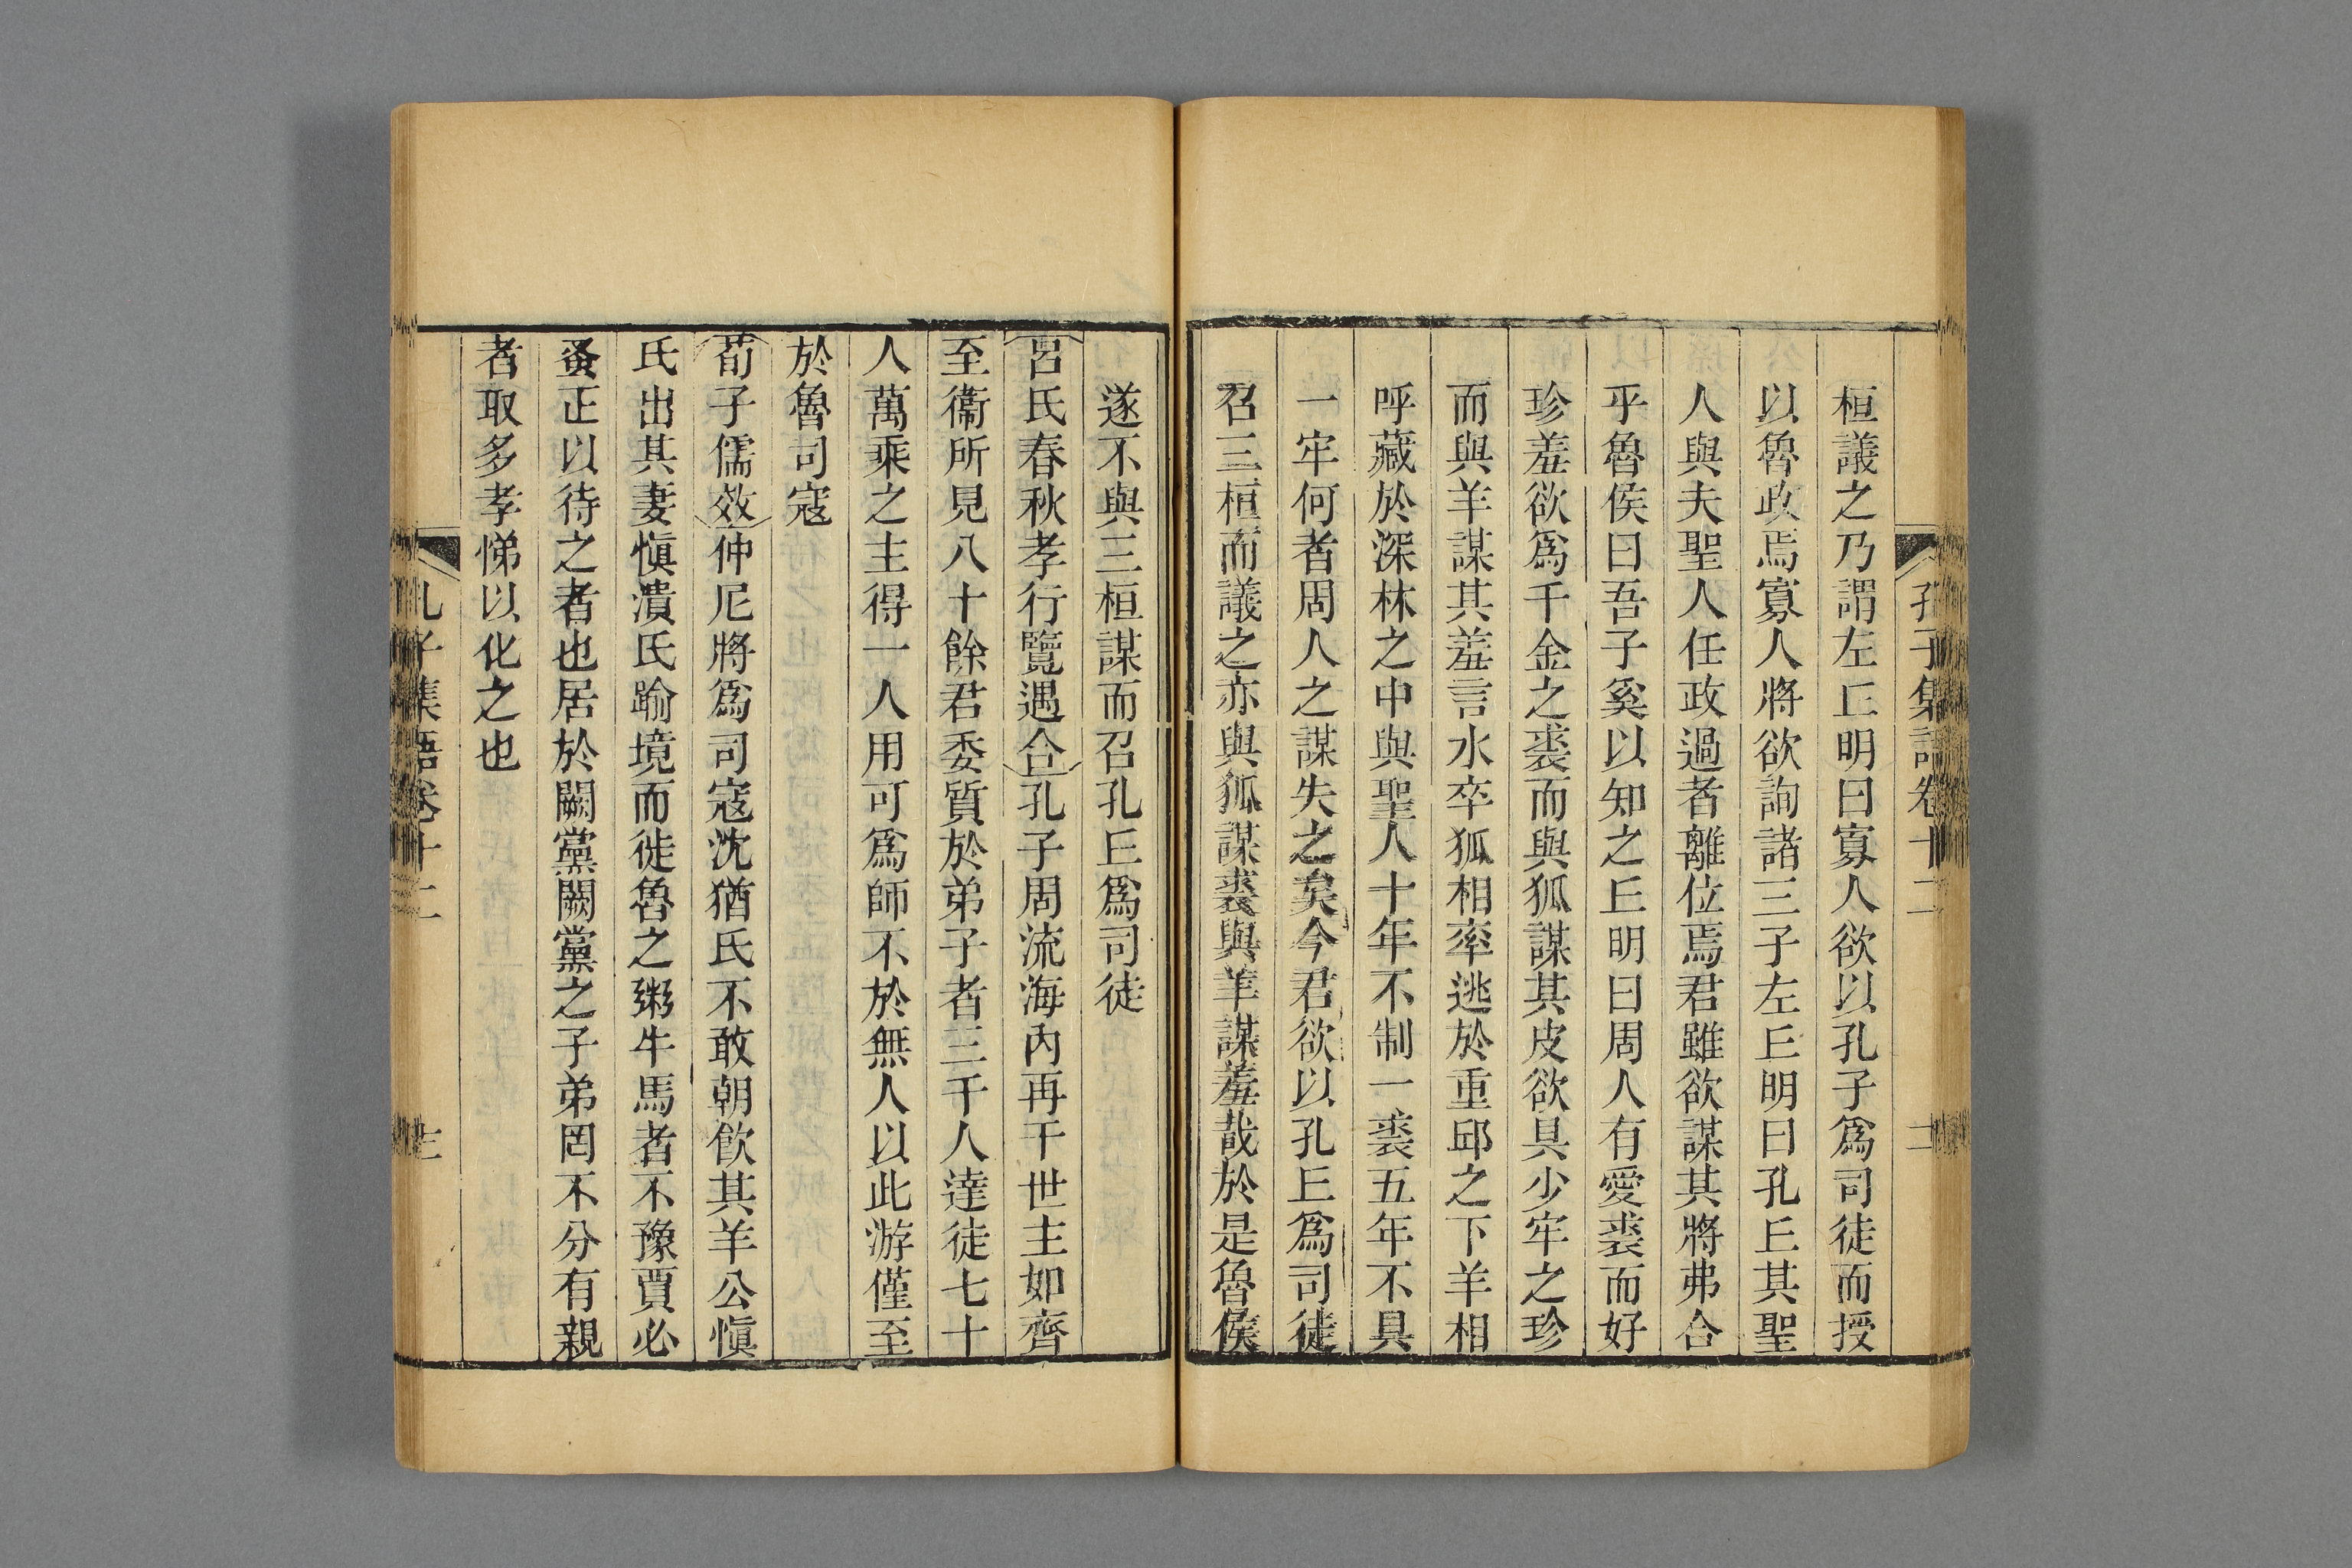 孔子集語卷十二
二
桓議之乃謂左丘明曰寡人欲以孔子爲司徒而授
以魯政焉寡人將欲詢諸三子左丘明曰孔丘其聖
人與夫聖人任政過者離位焉君雖欲謀其將弗合
乎魯侯曰吾子奚以知之丘明曰周人有愛裘而好
珍羞欲爲千金之裘而與狐謀其皮欲具少牢之珍
而與羊謀其羞言水卒狐相率逃於重邱之下羊相
呼藏於深林之中與聖人十年不制一裘五年不具
一牢何者周人之謀失之矣今君欲以孔丘爲司徒
召三桓而議之亦與狐謀裘與羊謀羞哉於是魯侯
遂不與三桓謀而召孔丘爲司徒
呂氏春秋孝行覽遇合孔子周流海内再干世主如齊
至衞所見八十餘君委質於弟子者三千人達徒七十
人萬乘之主得一人用可爲師不於無人以此游僅至
於魯司寇
荀子儒效仲尼將爲司寇沈猶氏不敢朝飮其羊公愼
氏出其妻愼潰氏踰境而徙魯之粥牛馬者不豫賈必
蚤正以待之者也居於闕黨闕黨之子弟罔不分有親
者取多孝悌以化之也
孔子集語卷十二